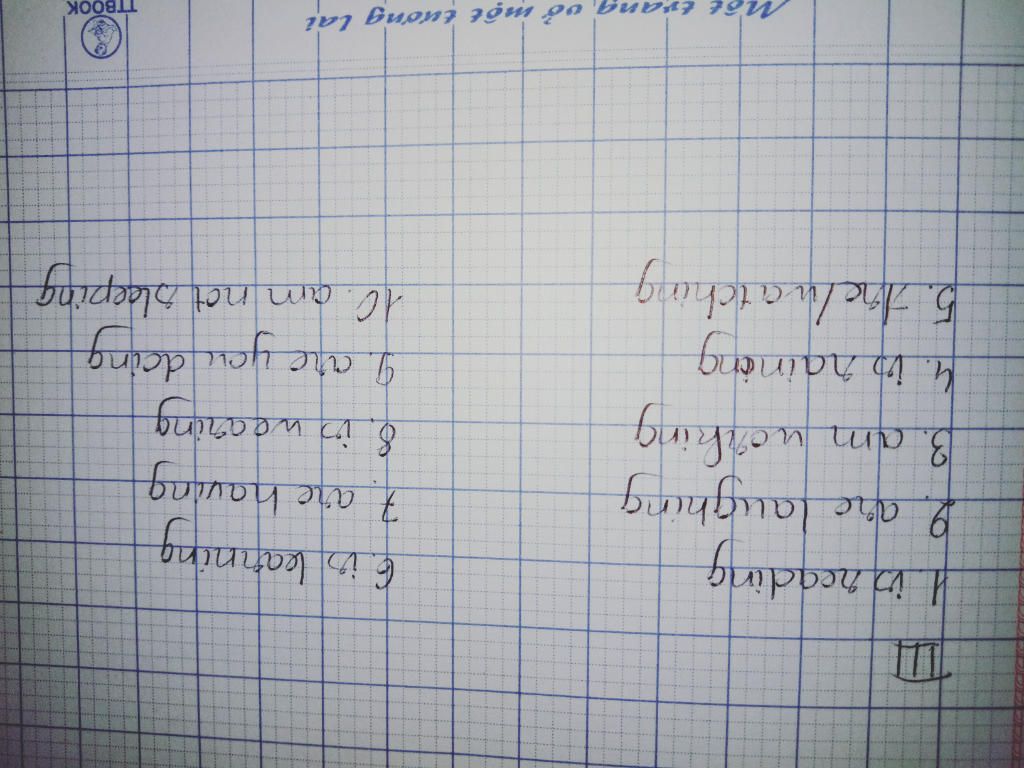 III
1. is reading
2. are laughing
3. am working
4. is raining
5. Are/watching
6. is learning
7. are having
8. is wearing
9. are you doing
10. am not sleeping
Một trang vở một tương lai
TTBOOK